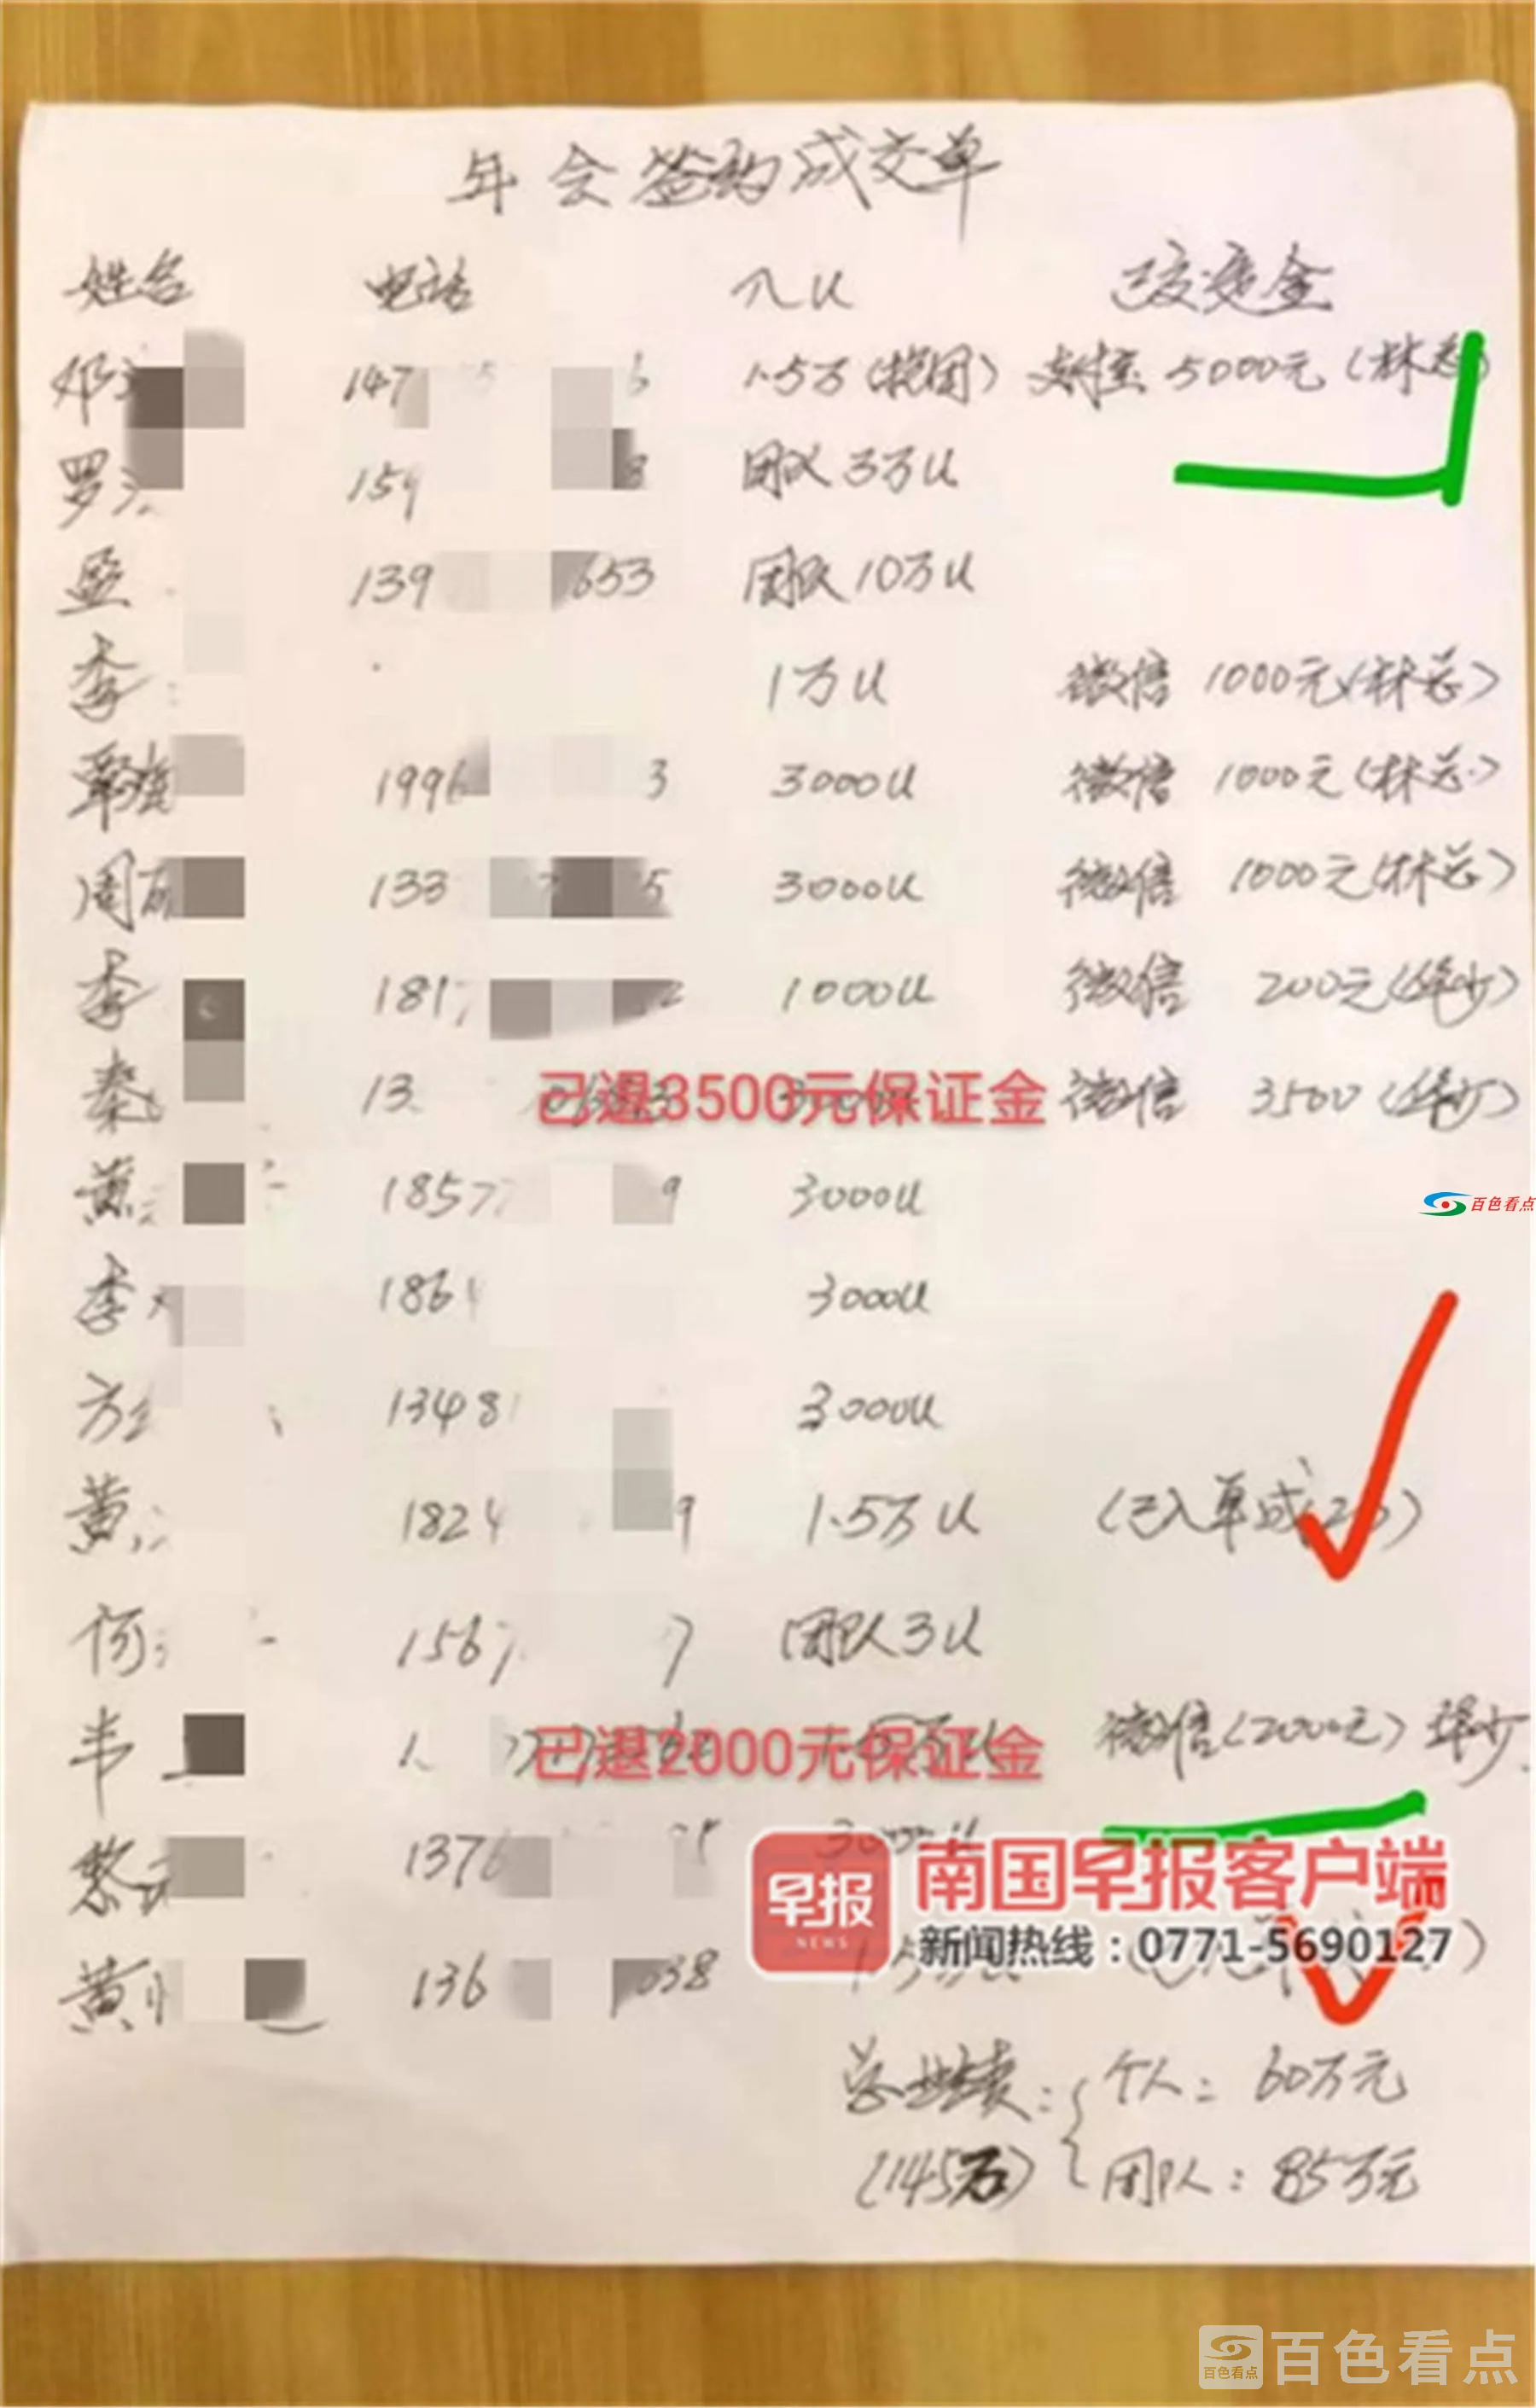 年会签约成交单
姓名 电话 入U 已交定金
邓 147 5 6 1.5万(抱团) 支付宝 5000元(林总)
罗 159 8 团队3万U
蓝 139 653 团队10万U
李 1万U 微信 1000元(林总)
覃 1996 3 3000U 微信 1000元(林总)
周丽 133 5 3000U 微信 1000元(林总)
李 181 2 1000U 微信 200元(华少)
秦 13 已退3500元保证金 微信 3500(华少)
黄 1857 9 3000U
李 1864 3000U
方 1348 3000U
黄 1824 9 1.5万U (已入单成)
何 1567 7 团队3U
韦 1 已退2000元保证金 微信(2000元)华少
黎 1376 3000U
黄 136 038
早报
NEWS
南国早报客户端
新闻热线:0771-5690127
总业绩: 个人: 60万元
(145万) 团队: 85万元
百色看点
百色看点
百色看点